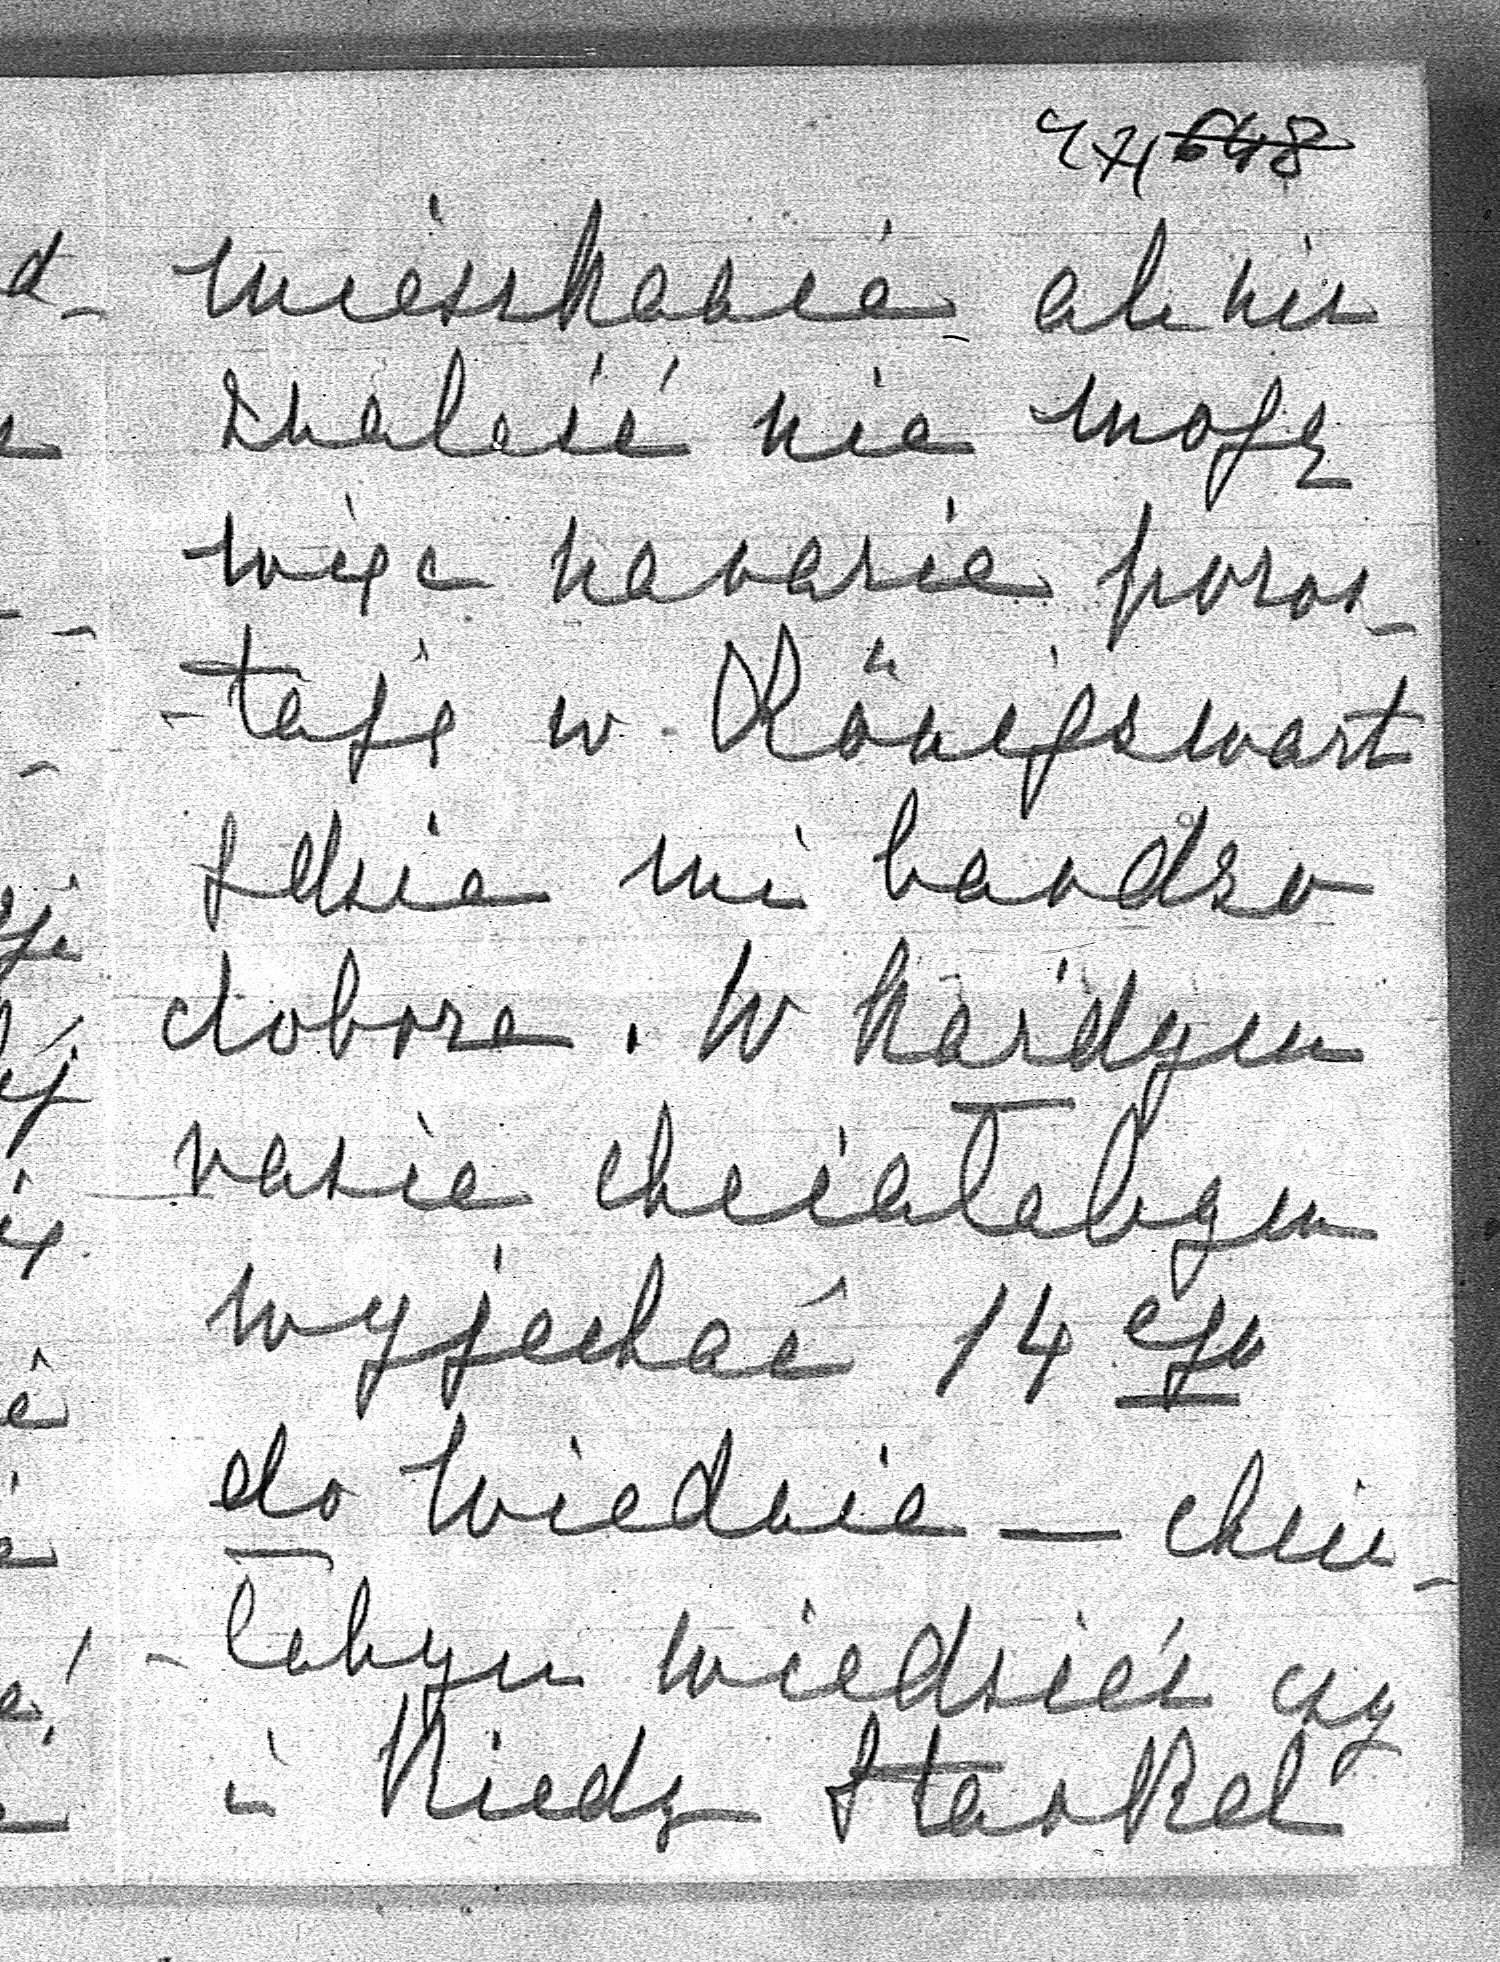 271 648
mieszkanie ale nic
znaleść nie mogę
więc narazie pozos-
-taję w Königswart
gdzie mi bardzo
dobrze. W każdym
razie chciałabym
wyjechać 14 ego
do Wiednia — chcia-
-łabym wiedzieć czy
i kiedy Starkel